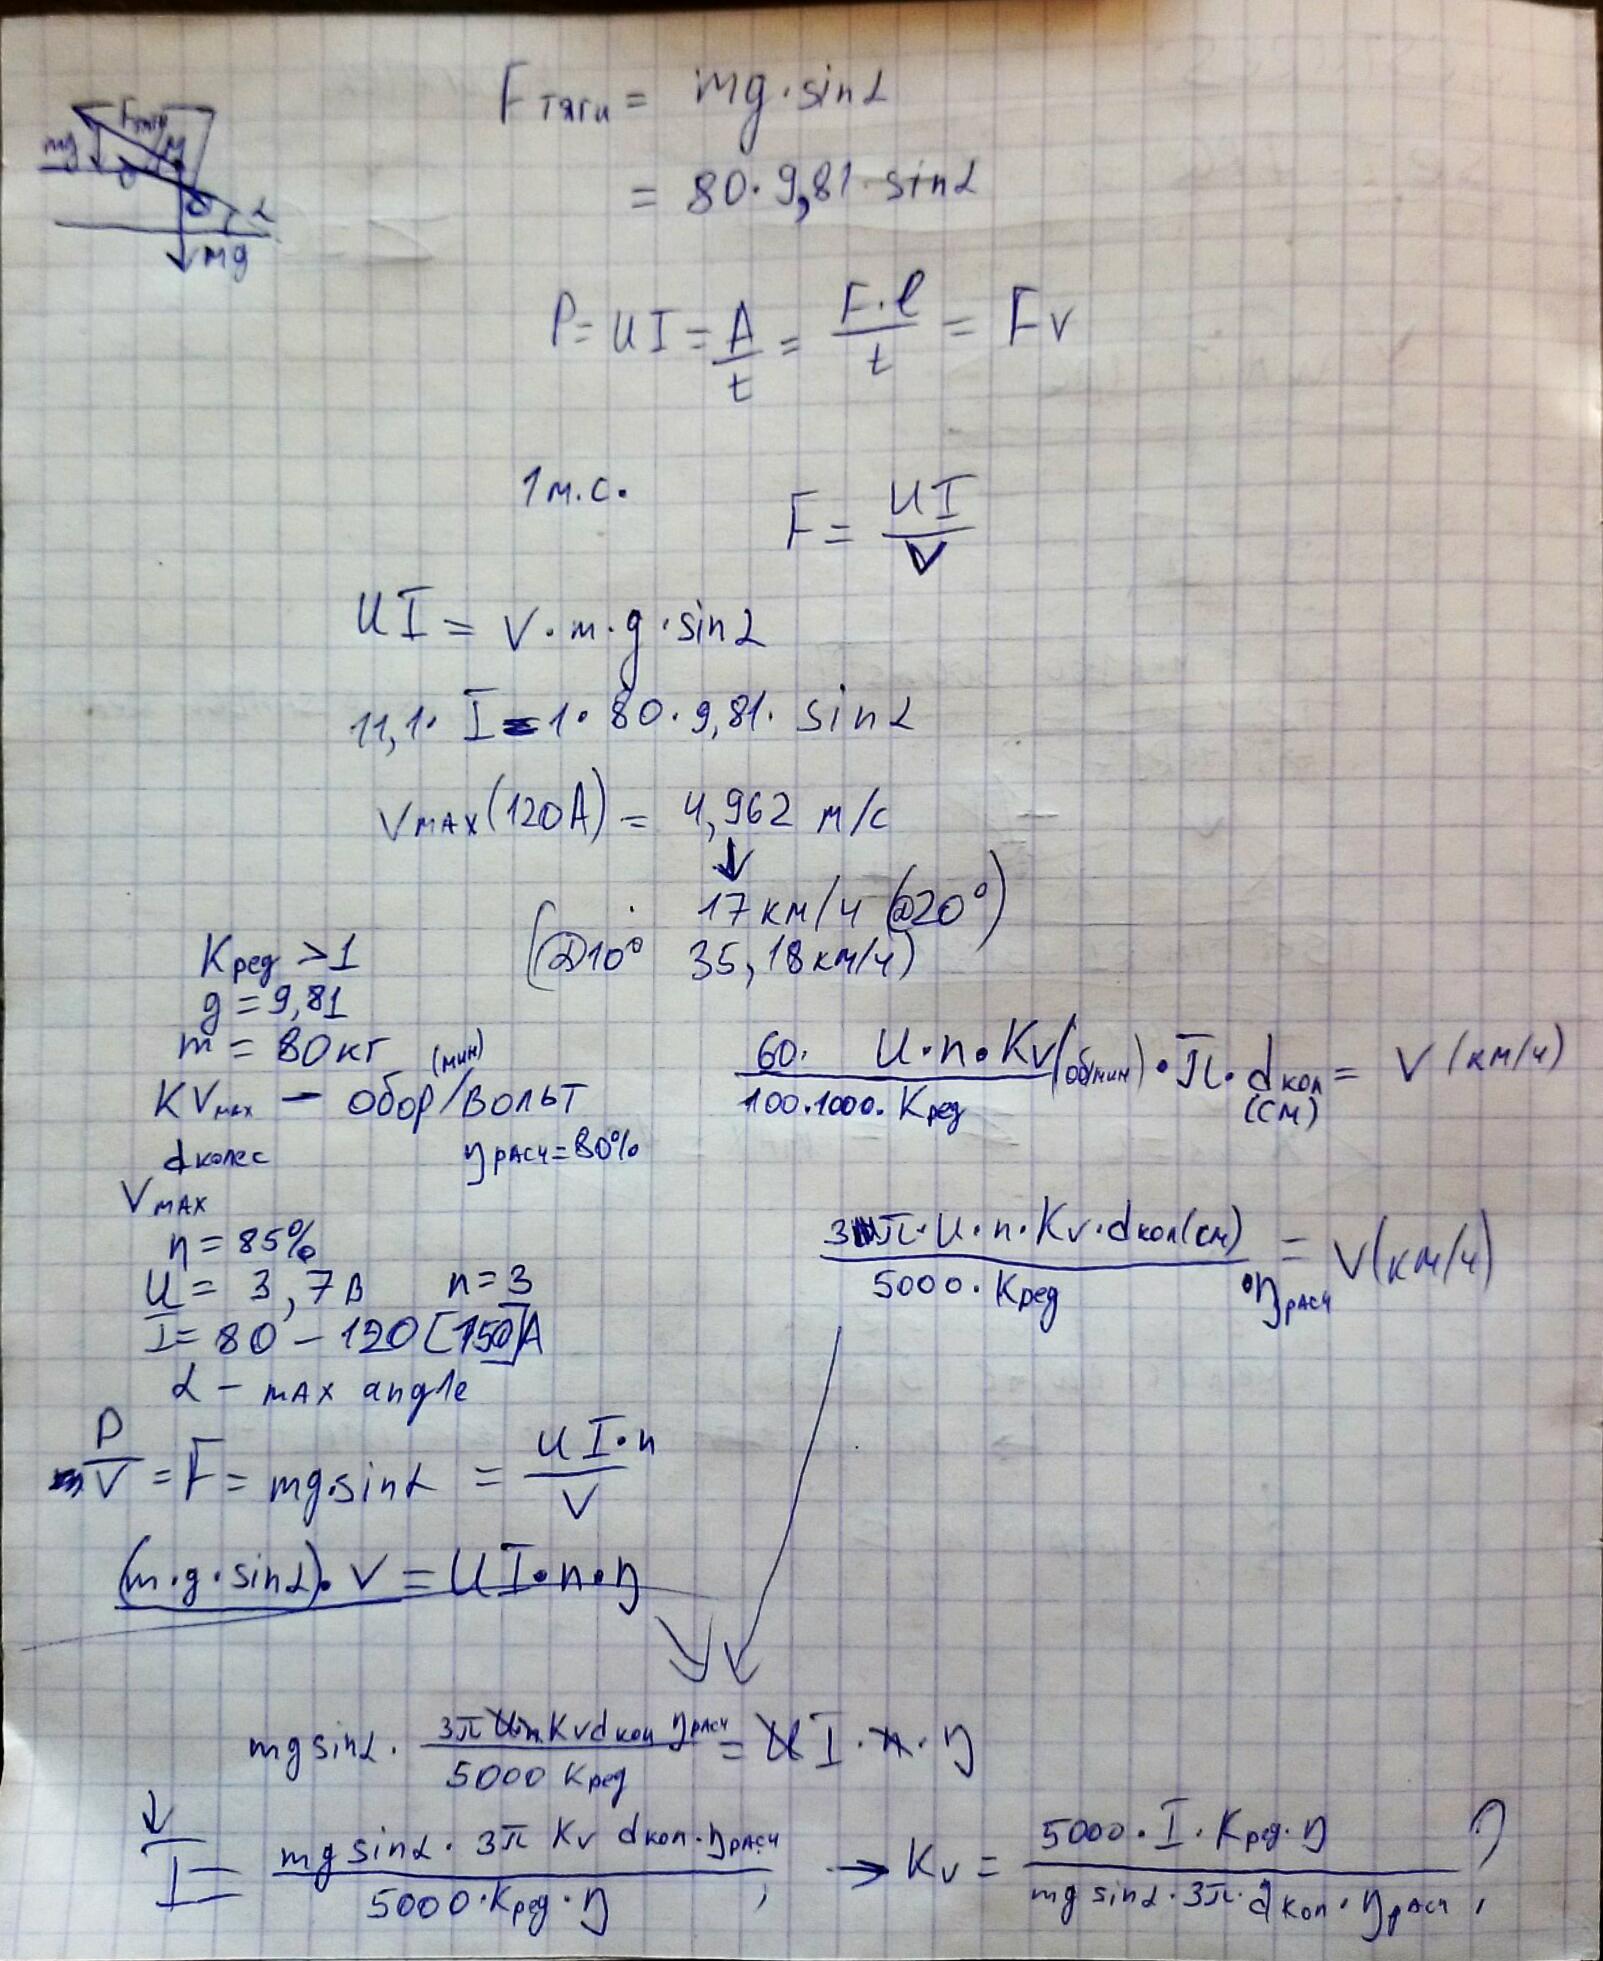 Fтяги = mg·sinα
= 80·9,81·sinα
Fтяги
mg
M
α
mg
P = UI = A/t = F·l/t = Fv
1 м.с.
F = UI/V
UI = V·m·g·sinα
11,1·I = 1·80·9,81·sinα
Vмах(120А) = 4,962 м/с
↓
17 км/ч (@20°)
(@10° 35,18 км/ч)
Kред > 1
g = 9,81
m = 80 кг
KVмах – обор(мин)/вольт
dколес ηрасч = 80%
Vмах
η = 85%
U = 3,7в n = 3
I = 80 – 120 [150]А
α – max angle
60·U·n·Kv(об/мин)·π·dкол(см) / 100·1000·Kред = V (км/ч)
3π·U·n·Kv·dкол(см) / 5000·Kред ·ηрасч = V(км/ч)
P/V = F = mg·sinα = UI·n/V
(m·g·sinα)·V = UI·n·η
mg sinα · 3π Un Kv dкол ηрасч / 5000 Kред = UI·n·η
↓
I = mg sinα · 3π Kv dкол·ηрасч / 5000·Kред·η ; → Kv = 5000·I·Kред·η / mg sinα·3π·dкол·ηрасч ;